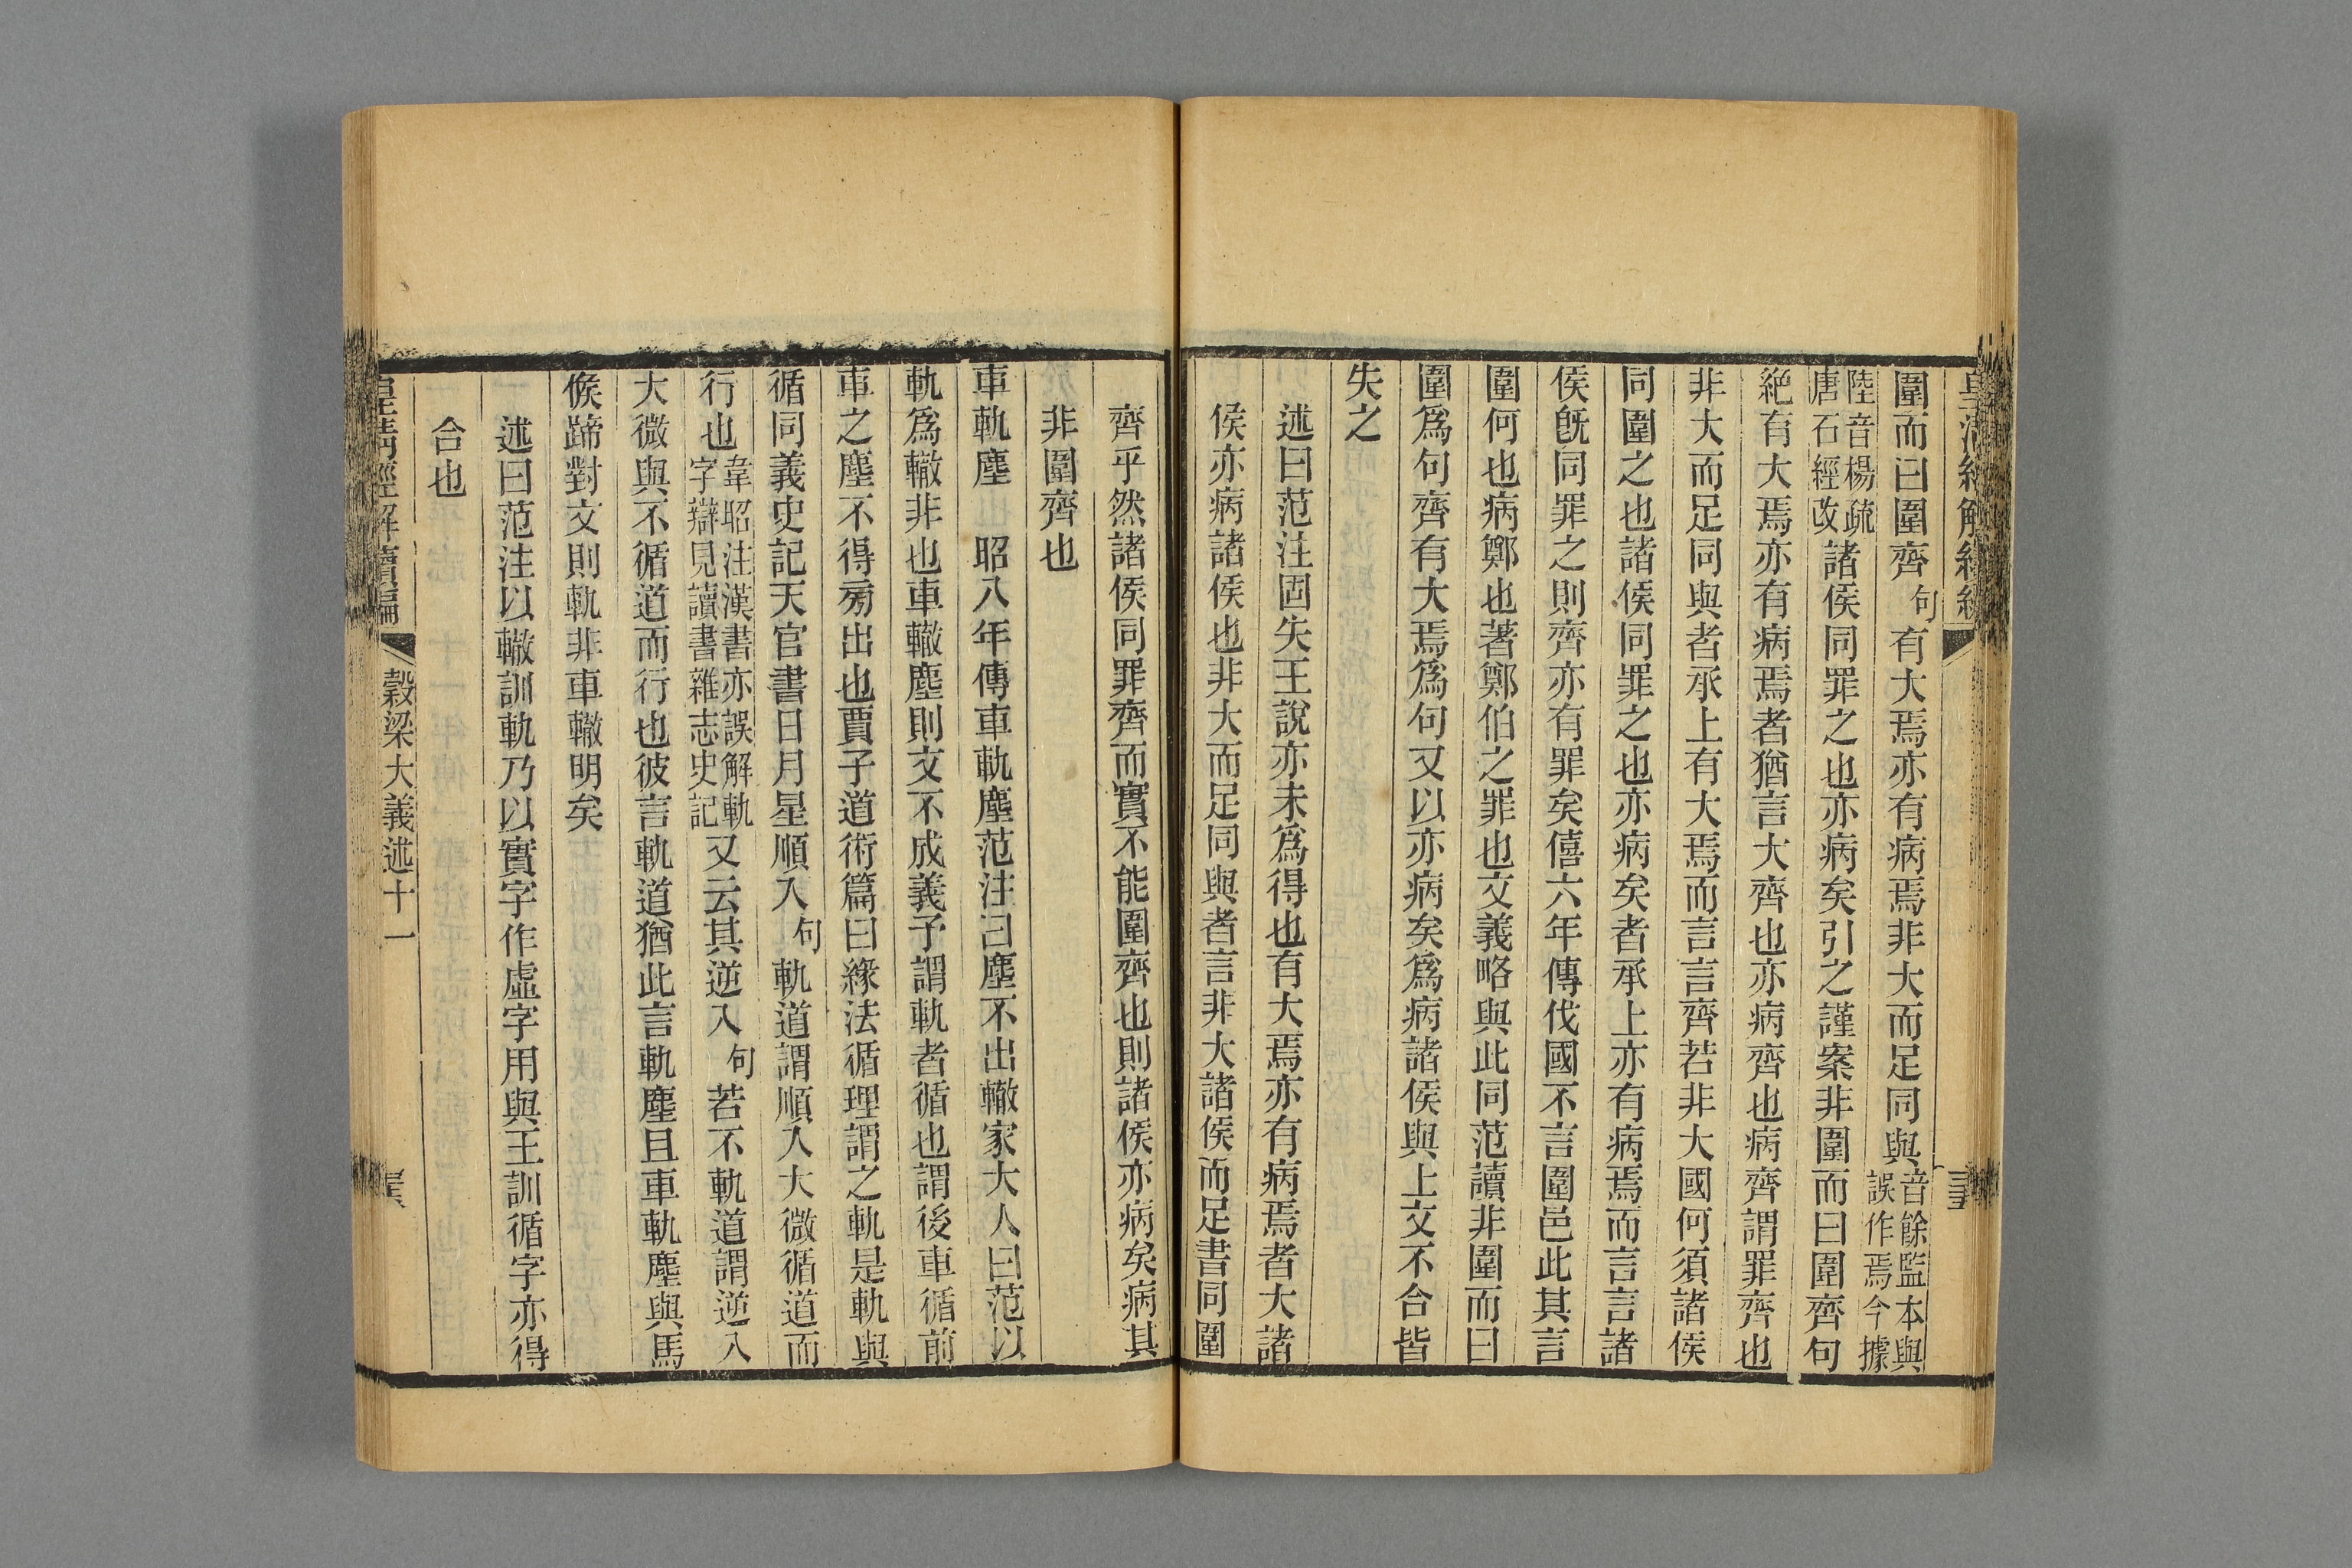 皇清經解續編
圍而曰圍齊句有大焉亦有病焉非大而足同與音餘監本與誤作焉今據
陸音楊疏唐石經改諸侯同罪之也亦病矣引之謹案非圍而曰圍齊句
絶有大焉亦有病焉者猶言大齊也亦病齊也病齊謂罪齊也
非大而足同與者承上有大焉而言言齊若非大國何須諸侯
同圍之也諸侯同罪之也亦病矣者承上亦有病焉而言言諸
侯旣同罪之則齊亦有罪矣僖六年傳伐國不言圍邑此其言
圍何也病鄭也著鄭伯之罪也文義略與此同范讀非圍而曰
圍爲句齊有大焉爲句又以亦病矣爲病諸侯與上文不合皆
失之
述曰范注固失王說亦未爲得也有大焉亦有病焉者大諸
侯亦病諸侯也非大而足同與者言非大諸侯而足書同圍
齊乎然諸侯同罪齊而實不能圍齊也則諸侯亦病矣病其
非圍齊也
車軌塵　昭八年傳車軌塵范注曰塵不出轍家大人曰范以
軌爲轍非也車轍塵則文不成義予謂軌者循也謂後車循前
車之塵不得旁出也賈子道術篇曰緣法循理謂之軌是軌與
循同義史記天官書曰月星順入句軌道謂順入大微循道而
行也韋昭注漢書亦誤解軌字辯見讀書雜志史記又云其逆入句若不軌道謂逆入
大微與不循道而行也彼言軌道猶此言軌塵且車軌塵與馬
候蹄對文則軌非車轍明矣
述曰范注以轍訓軌乃以實字作虛字用與王訓循字亦得
合也
皇清經解續編　穀梁大義述十一